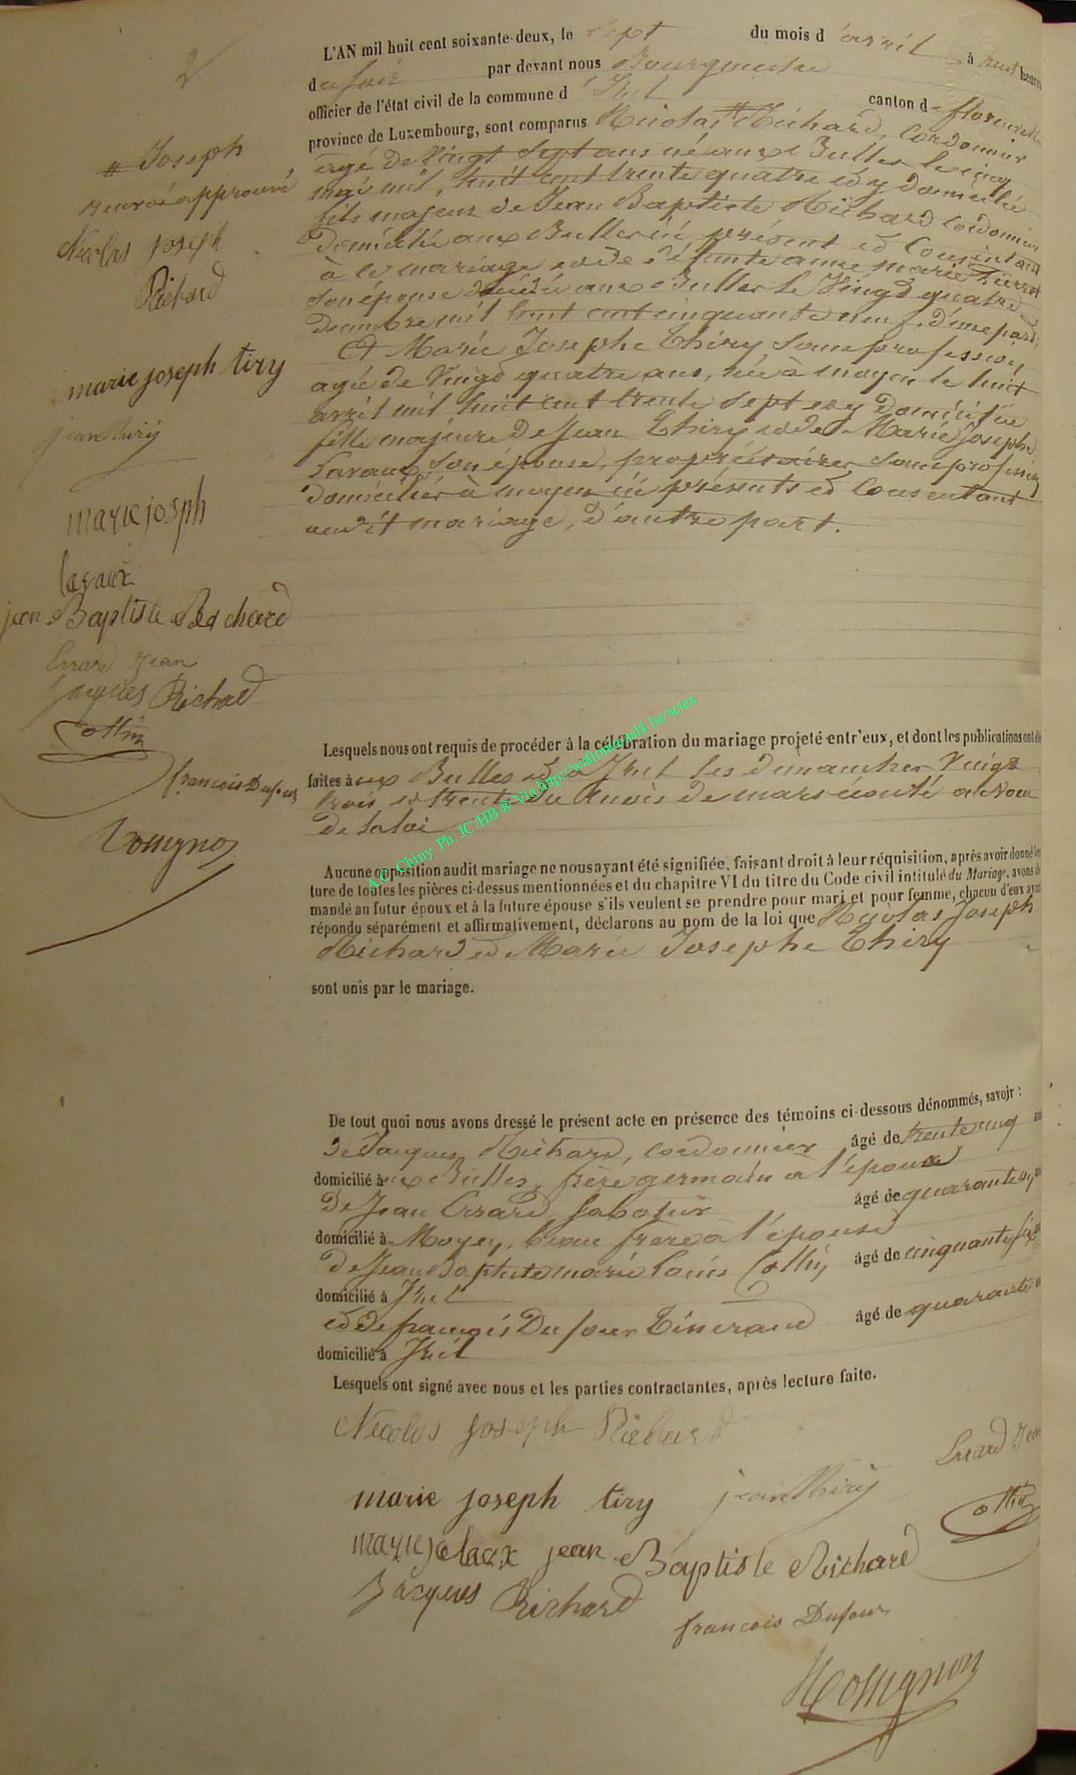 2
L'AN mil huit cent soixante-deux, le sept du mois d'avril à heures
du soir par devant nous Bourgmestre
officier de l'état civil de la commune d'Izel canton de florenville
province de Luxembourg, sont comparus Nicolas # Richard, Cordonnier
agé de Vingt Sept ans né aux Bulles le cinq
mai mil, huit cent trente quatre et y domicilié
fils majeur de Jean Baptiste Richard cordonnier
domicilié aux Bulles ici présent et Consentant
à ce mariage et de défunte anne marie Pierret
Son épouse décédée aux Bulles le Vingt quatre
Décembre mil huit cent cinquante neuf, d'une part,
Et Marie Josephe Thiry Sans profession,
agée de Vingt quatre ans, née à moyen le huit
avril mil huit cent trente sept et y domiciliée
fille majeure de Jean Thiry et de Marie Josephe
Lavaux Son épouse, propriétaires, Sans profession
domiciliés à moyen ici présents et Consentant
audit mariage, d'autre part.
# Joseph
renvoi approuvé
Nicolas Joseph
Richard
marie joseph tiry
jean thiry
marie josph
lavaux
jean Baptiste Richard
Errard Jean
Jacques Richard
Collin
francois Dufour
Rossignon
Lesquels nous ont requis de procéder à la célébration du mariage projeté entr'eux, et dont les publications ont été
faites aux Bulles et à Izel les dimanches Vingt
trois et trente du mois de mars écoulé au Nom
de la loi
Aucune opposition audit mariage ne nous ayant été signifiée, faisant droit à leur réquisition, après avoir donné lec
ture de toutes les pièces ci-dessus mentionnées et du chapitre VI du titre du Code civil intitulé du Mariage, avons de
mandé au futur époux et à la future épouse s'ils veulent se prendre pour mari et pour femme, chacun d'eux ayant
répondu séparément et affirmativement, déclarons au nom de la loi que Nicolas Joseph
Richard et Marie Josephe Thiry
sont unis par le mariage.
De tout quoi nous avons dressé le présent acte en présence des témoins ci-dessous dénommés, savoir :
De Jacques Richard, cordonnier âgé de trente cinq
domicilié aux Bulles, frère germain à l'époux
De Jean Errard, Sabotier âgé de quarante
domicilié à Moyen, beau frère à l'épouse
De Jean Baptiste marie louis Collin âgé de cinquante six
domicilié à Izel
et de françois Dufour Tisserand âgé de quarante
domicilié à Izel
Lesquels ont signé avec nous et les parties contractantes, après lecture faite.
Nicolas Joseph Richard
Errard Jean
marie joseph tiry jean thiry
Collin
jean Baptiste Richard
Jacques Richard
francois Dufour
Rossignon
A.C. Chiny Ph. JC/HB & Via http://wallonica.eul.be/actea